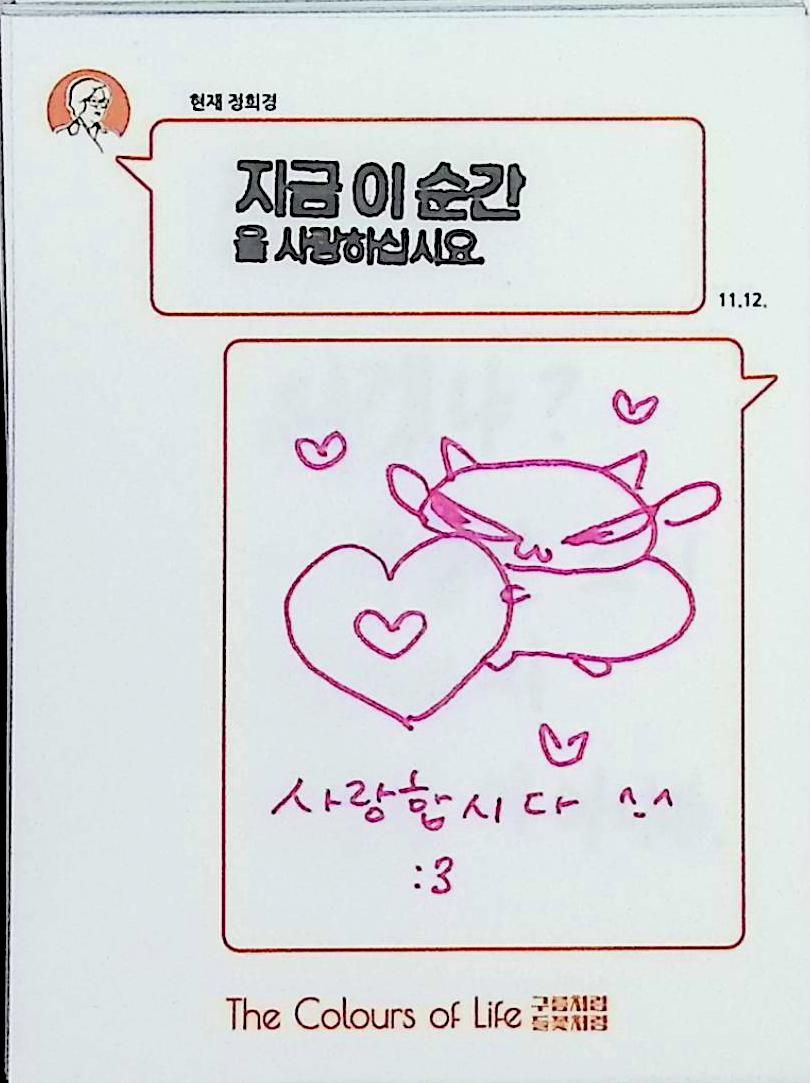 현재 정희경
지금 이 순간
을 사랑하십시요.
11.12.
사랑합시다 ^.^
:3
The Colours of Life 구름처럼
들꽃처럼